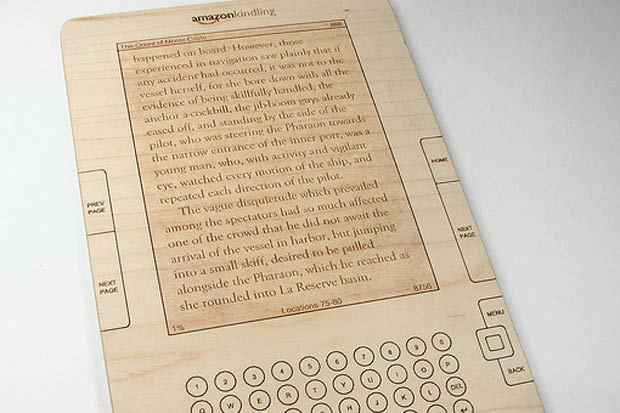 amazonkindling
The Count of Monte Cristo
happened on board. However, those
experienced in navigation saw plainly that if
any accident had occurred, it was not to the
vessel herself, for she bore down with all the
evidence of being skillfully handled, the
anchor a-cockbill, the jib-boom guys already
eased off, and standing by the side of the
pilot, who was steering the Pharaon towards
the narrow entrance of the inner port, was a
young man, who, with activity and vigilant
eye, watched every motion of the ship, and
repeated each direction of the pilot.
The vague disquietude which prevailed
among the spectators had so much affected
one of the crowd that he did not await the
arrival of the vessel in harbor, but jumping
into a small skiff, desired to be pulled
alongside the Pharaon, which he reached as
she rounded into La Reserve basin.
1%
Locations 75-80
8756
PREV
PAGE
NEXT
PAGE
HOME
NEXT
PAGE
MENU
BACK
1 2 3 4 5 6 7 8 9 0
Q W E R T Y U I O P DEL